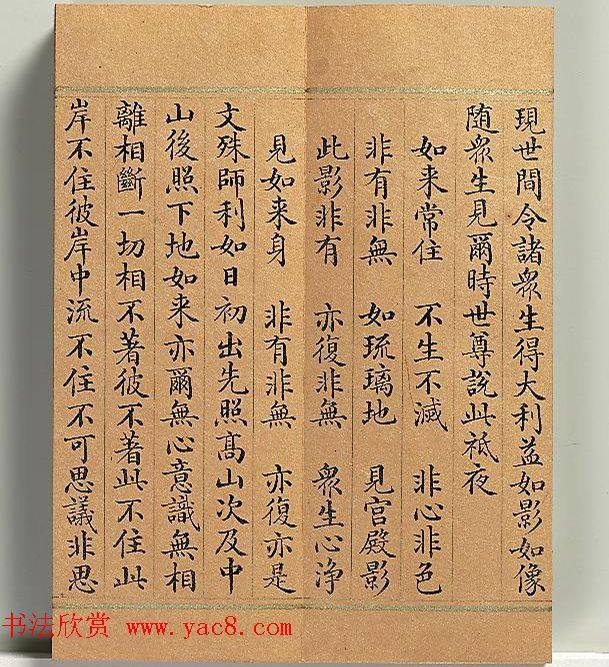 現世間令諸衆生得大利益如影如像
随衆生見爾時世尊說此祇夜
如来常住　不生不滅　非心非色
非有非無　如琉璃地　見官殿影
此影非有　亦復非無　衆生心淨
見如来身　非有非無　亦復亦是
文殊師利如日初出先照髙山次及中
山後照下地如来亦爾無心意識無相
離相斷一切相不著彼不著此不住此
岸不住彼岸中流不住不可思議非思
书法欣赏 www.yac8.com